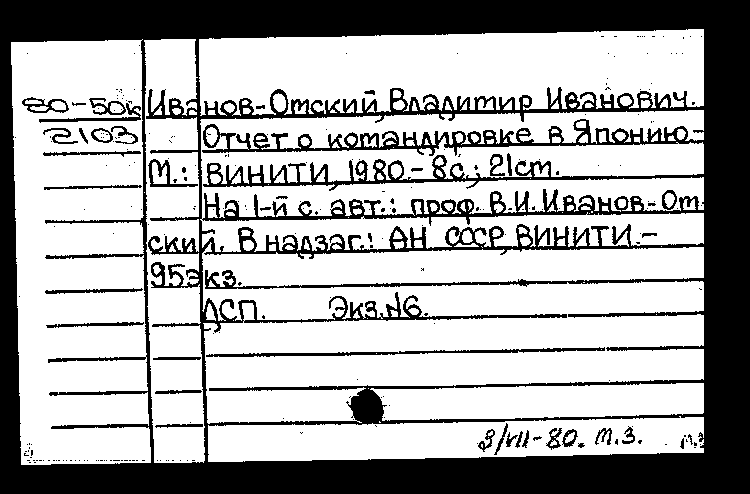 80-50к Иванов-Отский, Владимир Иванович.
2103 Отчет о командировке в Японию-
М.: ВИНИТИ, 1980.- 8с.; 21см.
На 1-й с. авт.: проф. В.И. Иванов-От-
ский. В надзаг.: АН СССР, ВИНИТИ.-
95экз.
ДСП. Экз.№6.
3/VII-80. т.з.